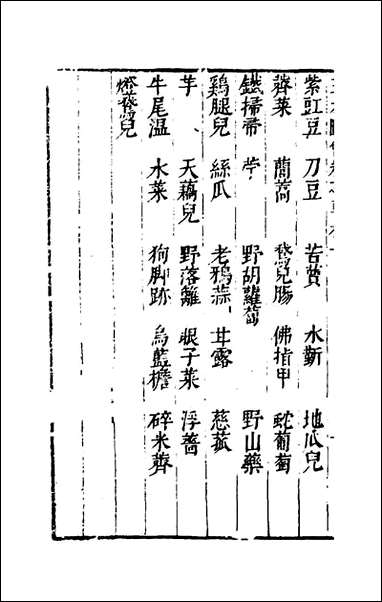 紫豇豆 刀豆 苦蕒 水蘄 地瓜兒
薺菜 蕳蒿 兒腸 佛指甲 蛇葡萄
鐵掃帚 苧 野胡蘿蔔 野山藥
鷄腿兒 絲瓜 老鴉蒜 甘露 慈菰
芋 天藕兒 野落籬 眼子菜 浮薔
牛尾温 水菜 狗脚跡 烏藍檐 碎米薺
燈兒